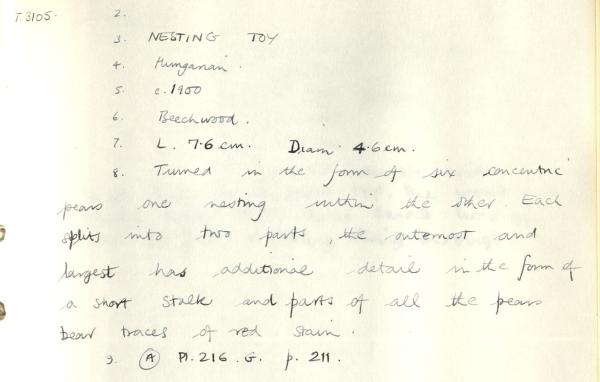 T.3105.
2.
3. NESTING TOY
4. Hungarian.
5. c.1900
6. Beechwood.
7. L. 7.6 cm. Diam. 4.6 cm.
8. Turned in the form of six concentric
pears one nesting within the other. Each
splits into two parts, the outermost and
largest has additional detail in the form of
a short stalk and parts of all the pears
bear traces of red stain.
9. A Pl. 216. G. p. 211.